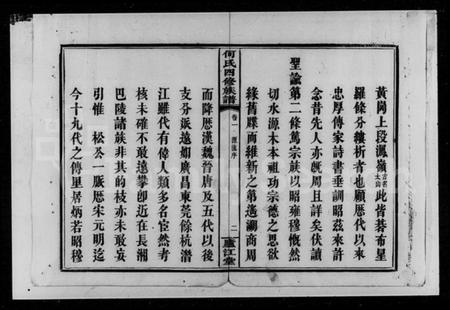 黃崗上段渢嶺古名太白此皆碁布星
羅條分縷析者也顧歷代以來
忠厚傳家詩書垂訓昭茲來許
念昔先人亦旣周且詳矣伏讀
聖諭第二條萬宗族以昭雍穆慨然
切水源木本祖功宗德之思欲
緣舊牒而維新之第遠溯商周
何氏四修族譜
卷一 源流序
二
廬江堂
而降歷漢魏晉唐及五代以後
支分派遠如廣昌東莞餘杭潛
江雖代有偉人類多名宦然考
核未確不敢遠攀卽近在長湘
巴陵諸族非其的枝亦未敢妄
引惟 松公一脈歷宋元明迄
今十九代之傳里居炳若昭穆